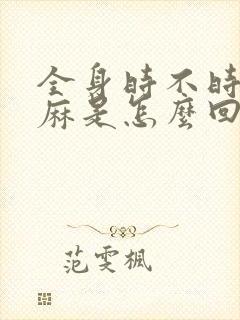 全身时不时
麻是怎麼回
范雯楓